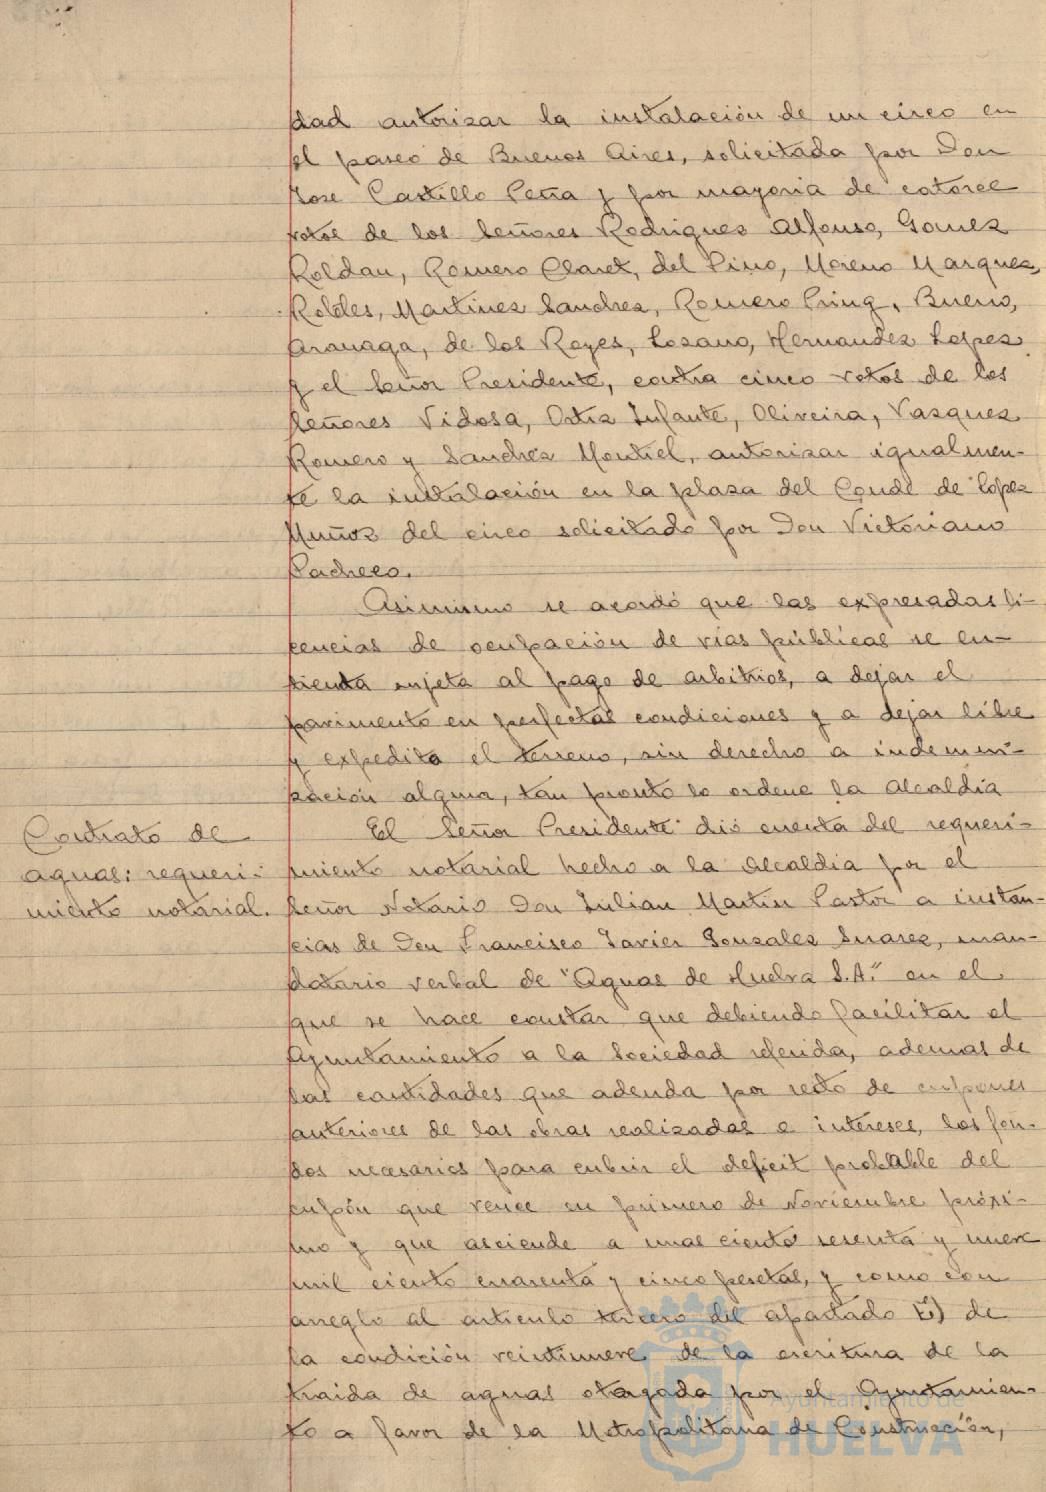 dad autorizar la instalación de un circo en
el paseo de Buenos Aires, solicitada por Don
Jose Castillo Peña y por mayoria de catorce
votos de los Señores Rodriguez Alfonso, Gomez
Roldan, Romero Claret, del Pino, Moreno Marquez,
Robles, Martinez Sanchez, Romero Pring, Bueno,
Aranaga, de los Reyes, Lozano, Hernandez Lopez
y el Señor Presidente, contra cinco votos de los
Señores Vidosa, Ortiz Infante, Oliveira, Vazquez
Romero y Sanchez Montiel, autorizar igualmen-
te la instalación en la plaza del Conde de Lopez
Muñoz del circo solicitado por Don Victoriano
Pacheco.
Asimismo se acordó que las expresadas li-
cencias de ocupación de vias públicas se en-
tienda sujeta al pago de arbitrios, a dejar el
pavimento en perfectas condiciones y a dejar libre
y expedito el terreno, sin derecho a indemni-
zación alguna, tan pronto lo ordene la Alcaldía
Contrato de
aguas: requeri-
miento notarial.
El Señor Presidente dió cuenta del requeri-
miento notarial hecho a la Alcaldia por el
Señor Notario Don Julian Martin Pastor a instan-
cias de Don Francisco Javier Gonzalez Suarez, man-
datario verbal de "Aguas de Huelva S.A." en el
que se hace constar que debiendo facilitar el
Ayuntamiento a la Sociedad referida, ademas de
las cantidades que adeuda por resto de cupones
anteriores de las obras realizadas e intereses, los fon-
dos necesarios para cubrir el deficit probable del
cupón que vence en primero de Noviembre próxi-
mo y que asciende a unas ciento sesenta y nueve
mil ciento cuarenta y cinco pesetas, y como con
arreglo al articulo tercero del apartado E) de
la condición veintinueve de la escritura de la
traida de aguas otorgada por el Ayuntamien-
to a favor de la Metropolitana de Construcción,
Ayuntamiento de
HUELVA